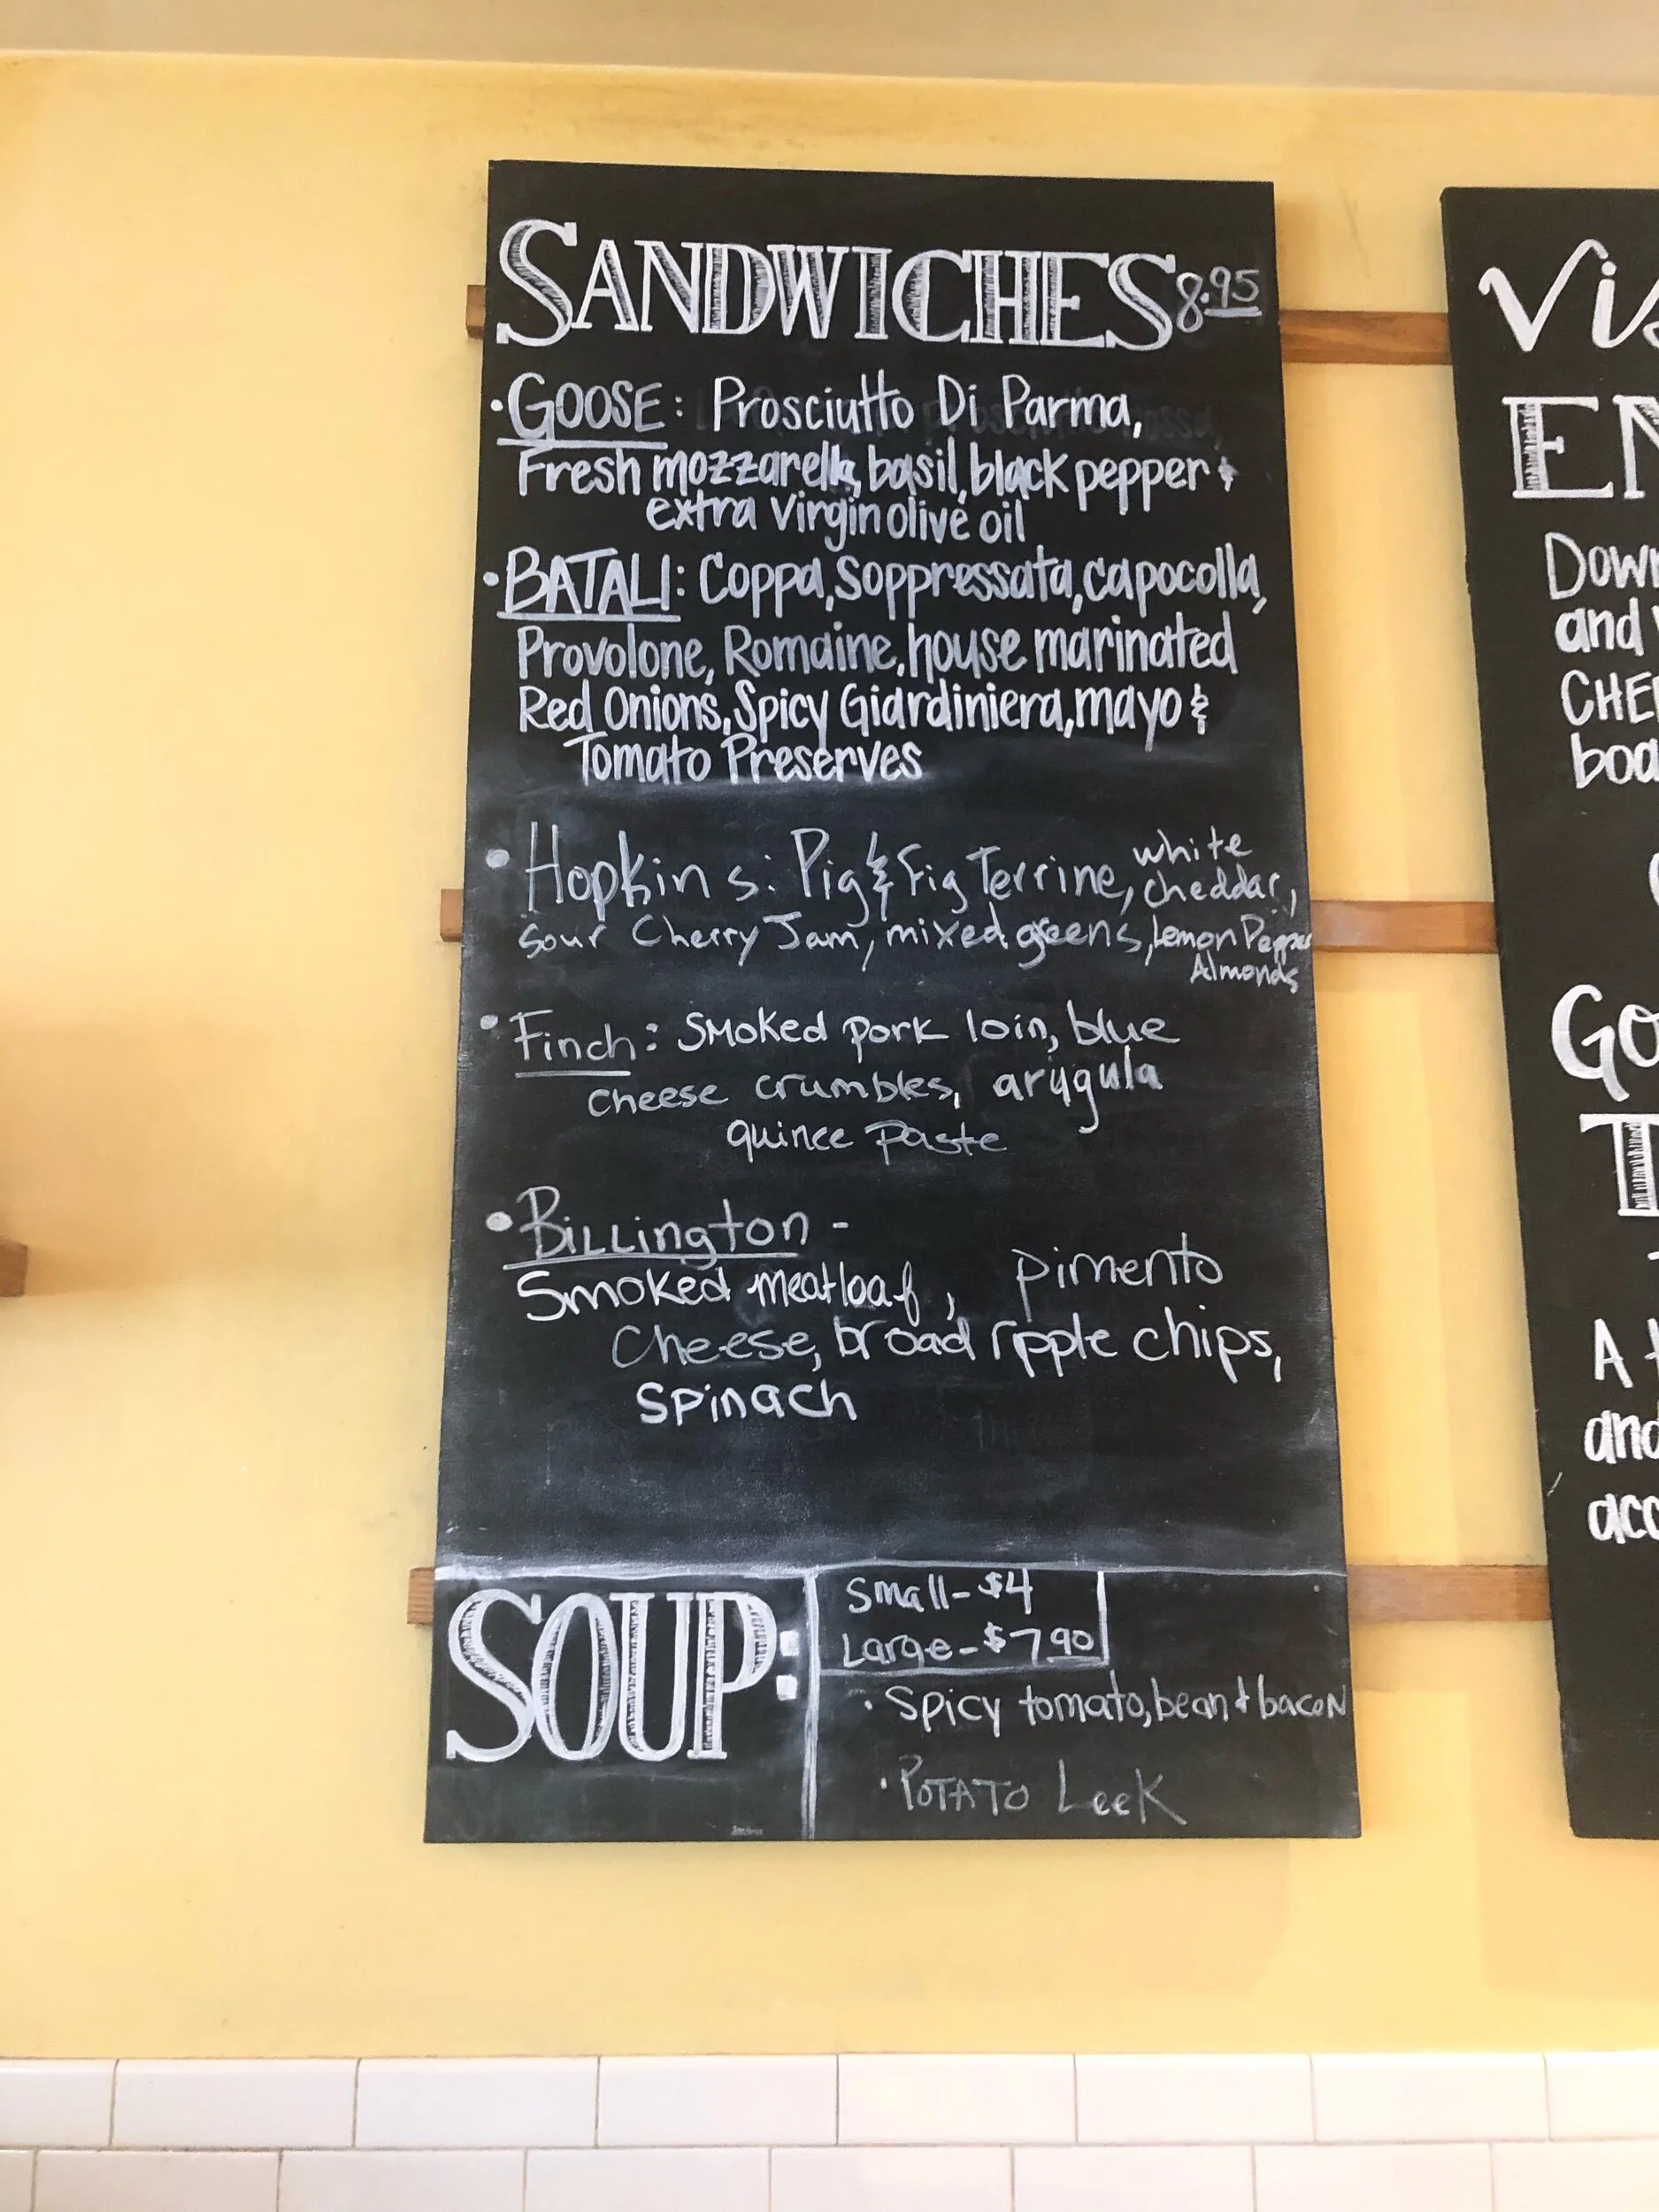 SANDWICHES 8.95
• GOOSE: Prosciutto Di Parma,
Fresh mozzarella, basil, black pepper &
extra virgin olive oil
• BATALI: Coppa, Soppressata, capocolla,
Provolone, Romaine, house marinated
Red Onions, Spicy Giardiniera, mayo &
Tomato Preserves
• Hopkins: Pig & Fig Terrine, white cheddar,
Sour Cherry Jam, mixed greens, Lemon Pepper
Almonds
• Finch: Smoked pork loin, blue
cheese crumbles, arugula
quince paste
• Billington -
Smoked meatloaf, pimento
Cheese, broad ripple chips,
spinach
SOUP:
Small - $4
Large - $7.90
• Spicy tomato, bean & bacon
• POTATO LeeK
Vis
EN
Down
and
CHE
boa
Go
T
A
and
acc